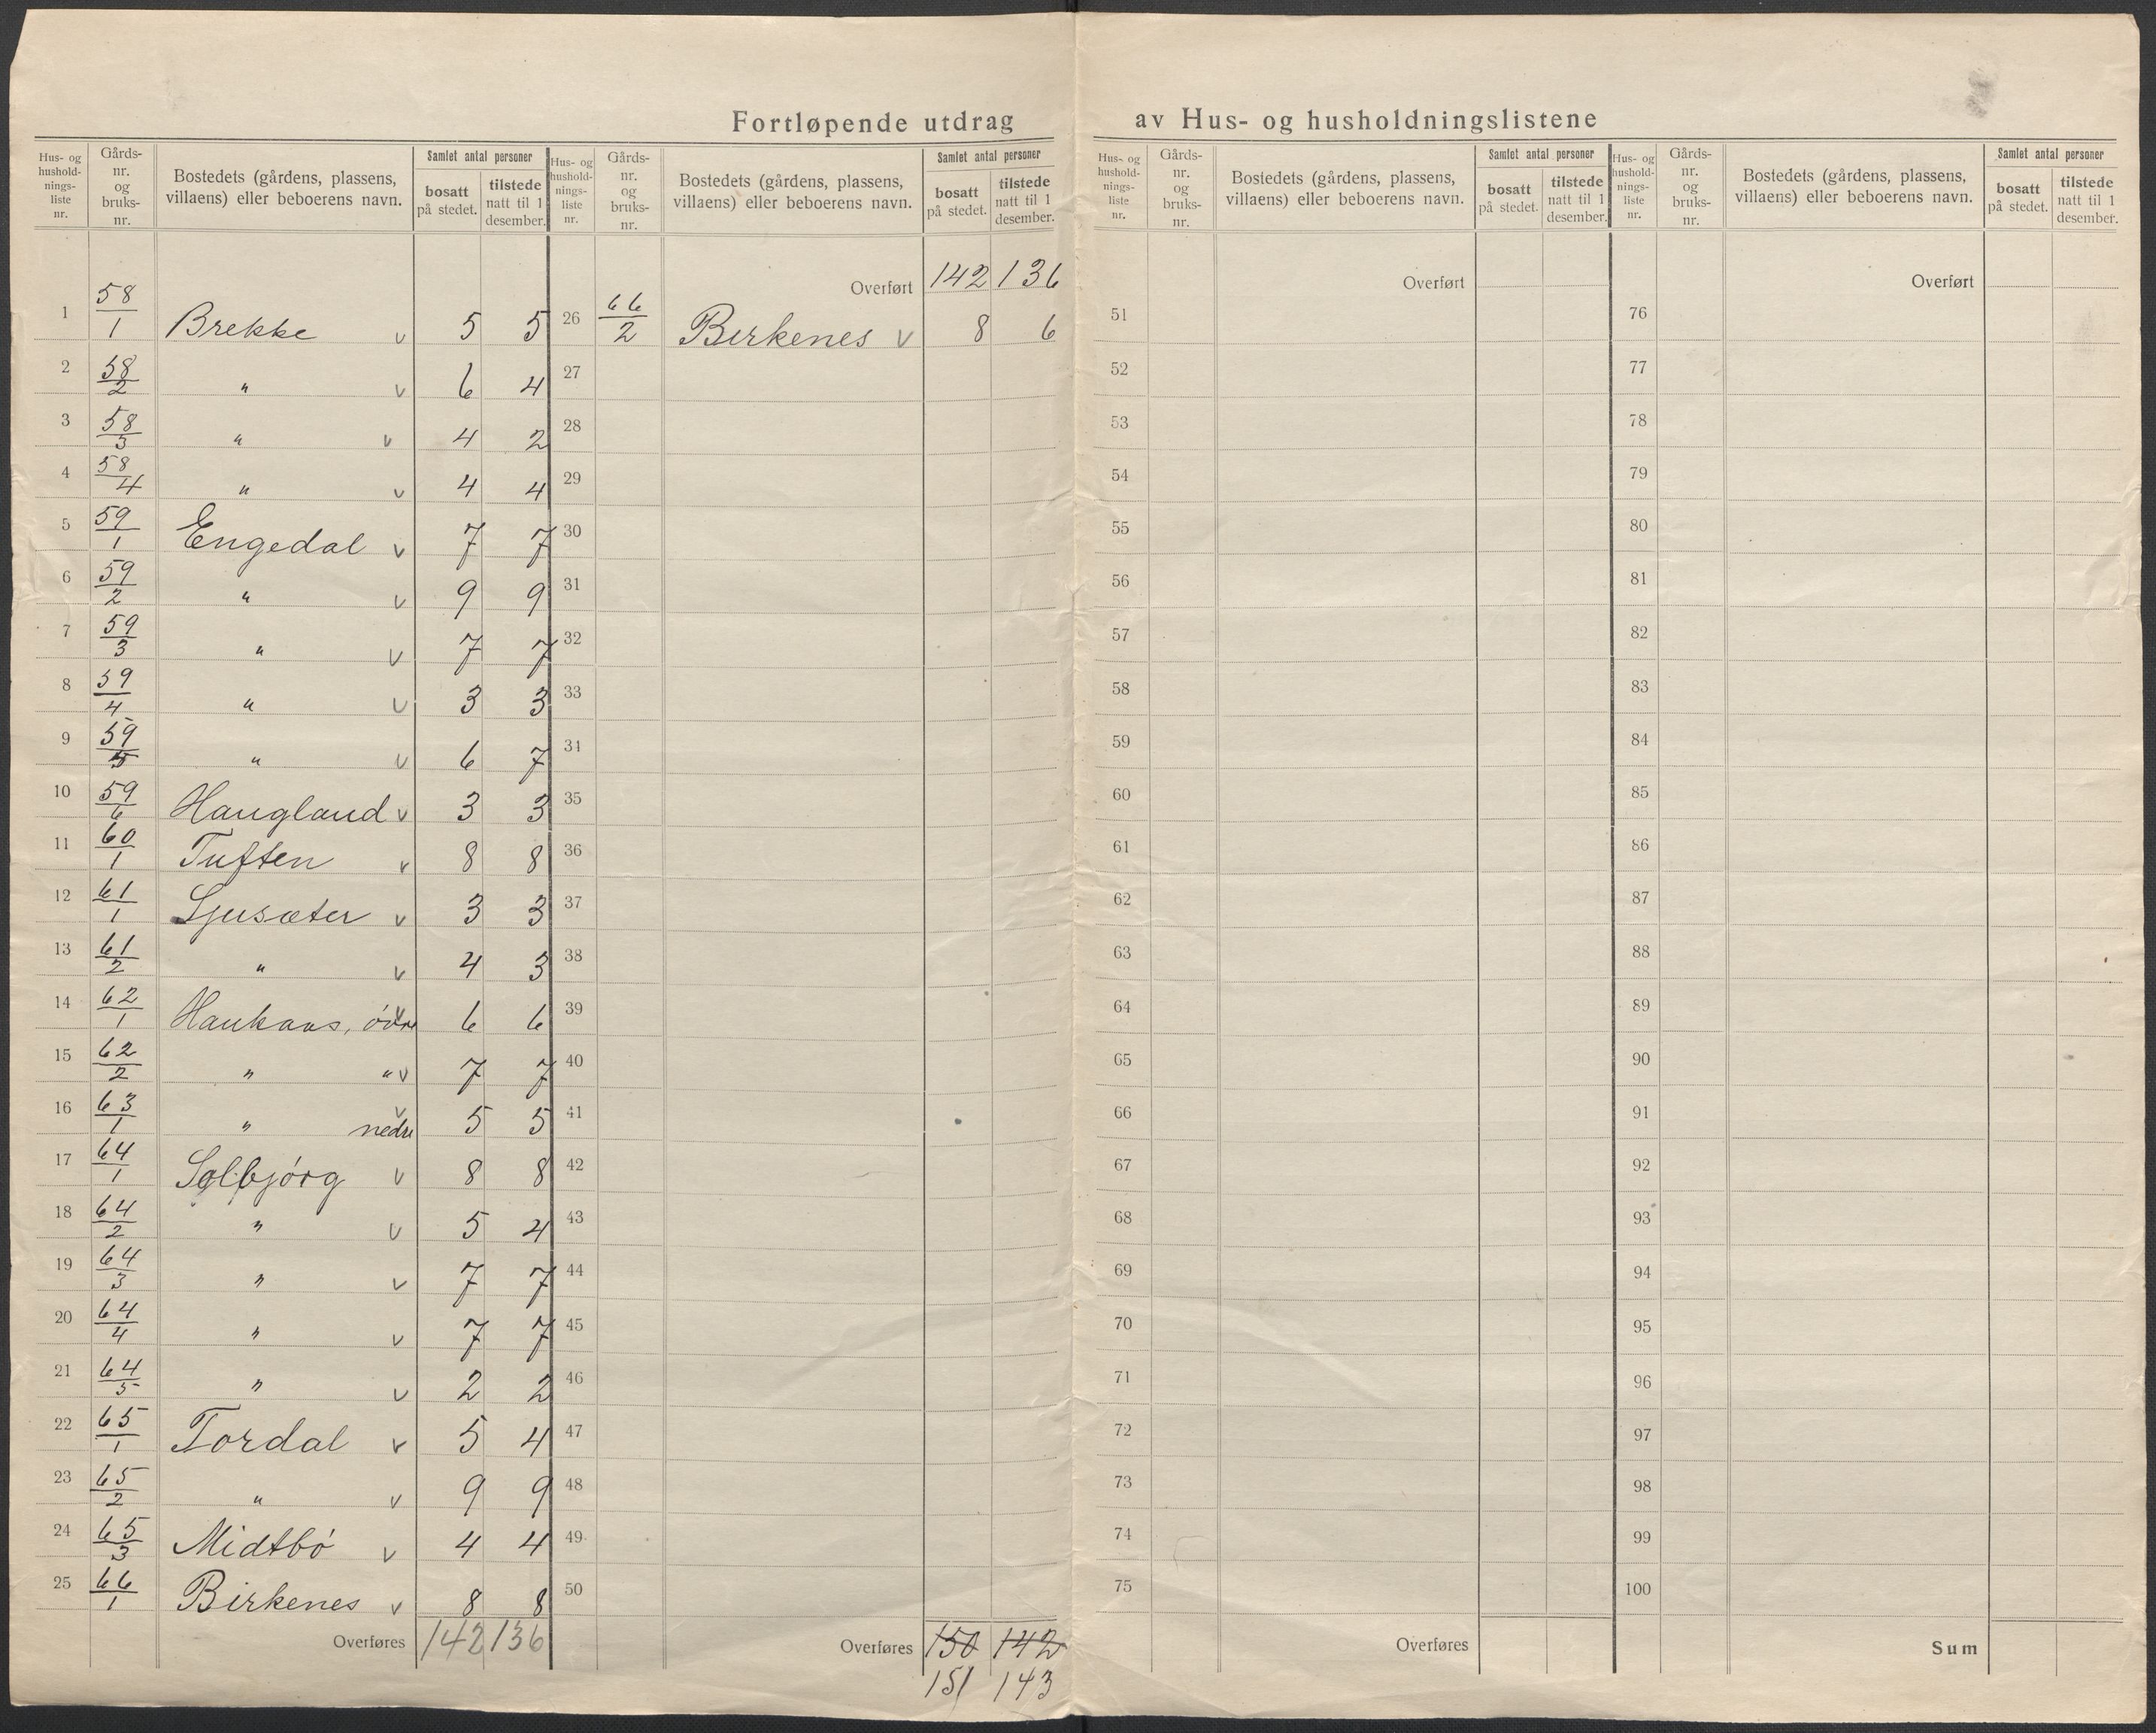 Fortløpende utdrag av Hus- og husholdningslistene
Hus- og hushold- nings- liste nr. | Gårds- nr. og bruks- nr. | Bostedets (gårdens, plassens, villaens) eller beboerens navn. | Samlet antal personer | bosatt på stedet. | tilstede natt til 1 desember.
1 58/1 Brekke v 5 5
2 58/2 " v 6 4
3 58/3 " v 4 2
4 58/4 " v 4 4
5 59/1 Engedal v 7 7
6 59/2 " v 9 9
7 59/3 " v 7 7
8 59/4 " v 3 3
9 59/5 " v 6 7
10 59/6 Haugland v 3 3
11 60/1 Tuften v 8 8
12 61/1 Ljusæter v 3 3
13 61/2 " v 4 3
14 62/1 Haukaas, övre v 6 6
15 62/2 " " v 7 7
16 63/1 " nedre v 5 5
17 64/1 Solbjörg v 8 8
18 64/2 " v 5 4
19 64/3 " v 7 7
20 64/4 " v 7 7
21 64/5 " v 2 2
22 65/1 Tordal v 5 4
23 65/2 " v 9 9
24 65/3 Midtbö v 4 4
25 66/1 Birkenes v 8 8
Overføres 142 136
Hus- og hushold- nings- liste nr. | Gårds- nr. og bruks- nr. | Bostedets (gårdens, plassens, villaens) eller beboerens navn. | Samlet antal personer | bosatt på stedet. | tilstede natt til 1 desember.
Overført 142 136
26 66/2 Birkenes v 8 6
27
28
29
30
31
32
33
34
35
36
37
38
39
40
41
42
43
44
45
46
47
48
49
50
Overføres 150 142
151 143
Hus- og hushold- nings- liste nr. | Gårds- nr. og bruks- nr. | Bostedets (gårdens, plassens, villaens) eller beboerens navn. | Samlet antal personer | bosatt på stedet. | tilstede natt til 1 desember.
Overført
51
52
53
54
55
56
57
58
59
60
61
62
63
64
65
66
67
68
69
70
71
72
73
74
75
Overføres
Hus- og hushold- nings- liste nr. | Gårds- nr. og bruks- nr. | Bostedets (gårdens, plassens, villaens) eller beboerens navn. | Samlet antal personer | bosatt på stedet. | tilstede natt til 1 desember.
Overført
76
77
78
79
80
81
82
83
84
85
86
87
88
89
90
91
92
93
94
95
96
97
98
99
100
Sum